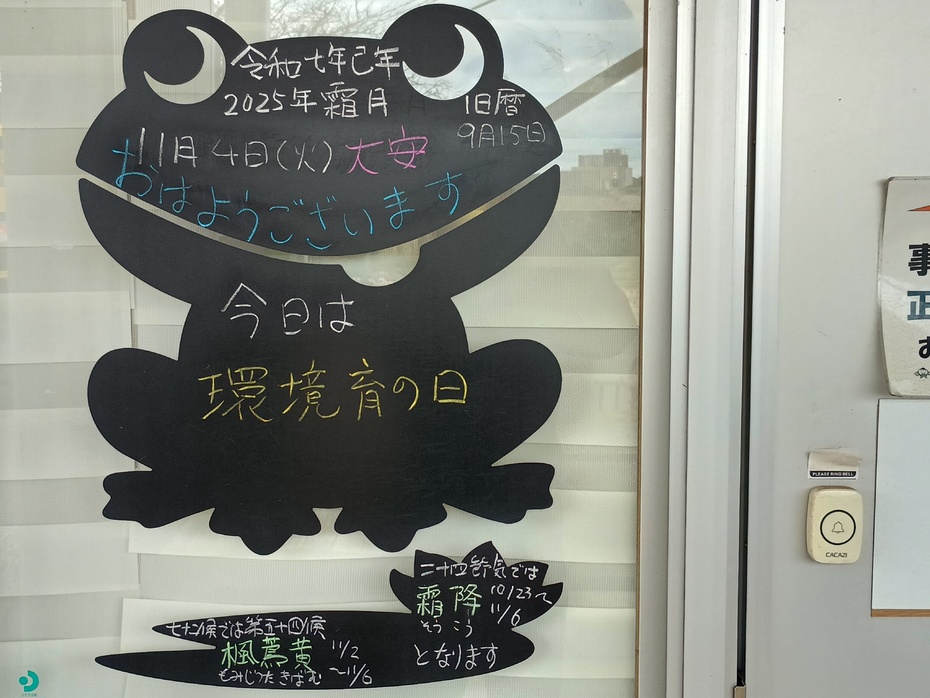 令和七年己年
2025年霜月
旧暦
9月15日
11月4日(火)大安
おはようございます
今日は
環境育の日
二十四節気では
霜降 10/23〜11/6
そうこう
となります
七十二候では第五十四候
楓蔦黄 11/2〜11/6
もみじつたきばむ
PLEASE RING BELL
CACAZI
事
正
お